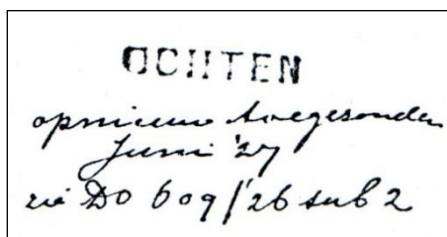 OCHTEN
opnieuw toegezonden
Juni '27
zie DO 609/'26 sub 2